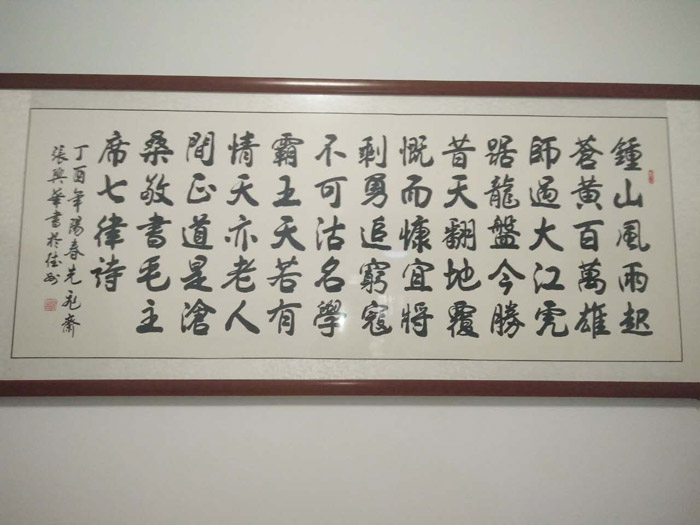 鍾山風雨起
蒼黃百萬雄
師過大江虎
踞龍盤今勝
昔天翻地覆
慨而慷宜將
剩勇追窮寇
不可沽名學
霸王天若有
情天亦老人
間正道是滄
桑敬書毛主
席七律詩
丁酉年陽春先
張興華書於